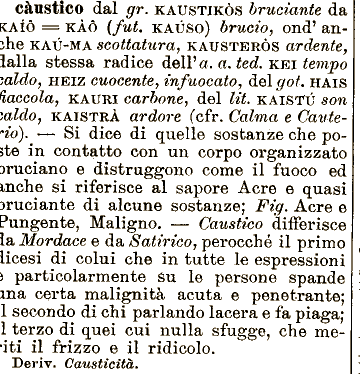 càustico dal gr. KAUSTIKÒS bruciante da
KAÍÔ = KÀÔ (fut. KAÚSO) brucio, ond' an-
che KAÚ-MA scottatura, KAUSTERÒS ardente,
dalla stessa radice dell'a. a. ted. KEI tempo
caldo, HEIZ cuocente, infuocato, del got. HAIS
fiaccola, KAURI carbone, del lit. KAISTÚ son
caldo, KAISTRÀ ardore (cfr. Calma e Caute-
rio). — Si dice di quelle sostanze che po-
ste in contatto con un corpo organizzato
bruciano e distruggono come il fuoco ed
anche si riferisce al sapore Acre e quasi
bruciante di alcune sostanze; Fig. Acre e
Pungente, Maligno. — Caustico differisce
da Mordace e da Satirico, perocché il primo
dicesi di colui che in tutte le espressioni
e particolarmente su le persone spande
una certa malignità acuta e penetrante;
il secondo di chi parlando lacera e fa piaga;
il terzo di quei cui nulla sfugge, che me-
riti il frizzo e il ridicolo.
Deriv. Causticità.